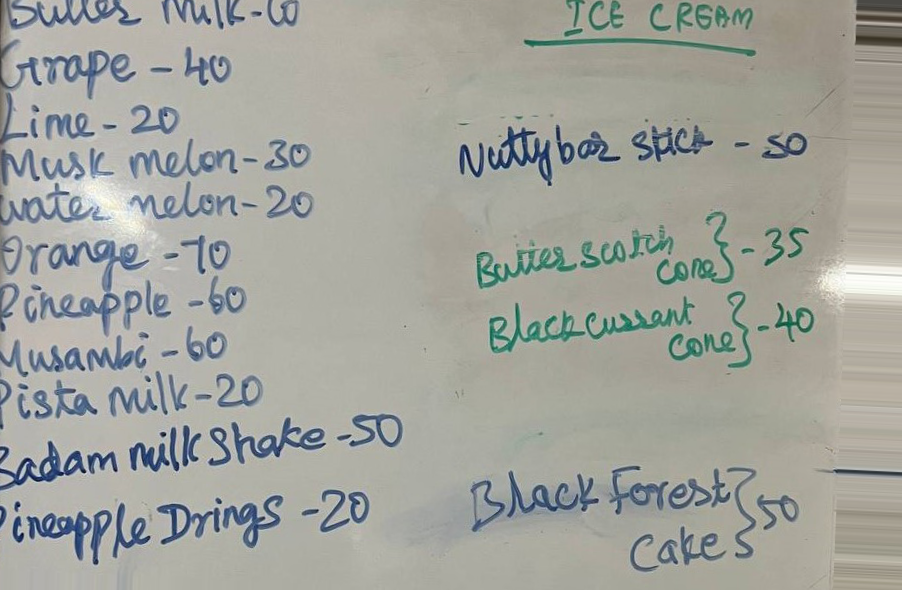 Butter Milk-60
Grape - 40
Lime - 20
Musk melon-30
water melon-20
Orange -70
Pineapple -60
Musambi -60
Pista Milk-20
Badam milk Shake -50
Pineapple Drings -20
ICE CREAM
Nuttybar stick - 50
Butter scotch
cone} -35
Blackcurrant
cone} -40
Black Forest
Cake} 50